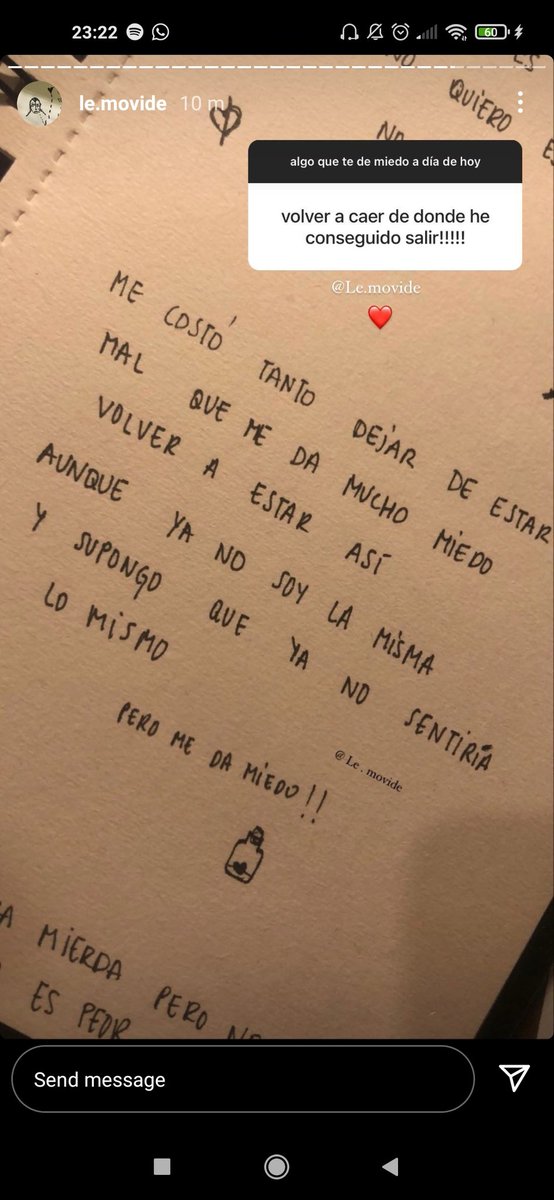 23:22
60
le.movide 10 m
ES
NO
QUIERO
NO
algo que te de miedo a día de hoy
volver a caer de donde he
conseguido salir!!!!!
@Le.movide
ME COSTÓ TANTO DEJAR DE ESTAR
MAL QUE ME DA MUCHO MIEDO
VOLVER A ESTAR ASÍ
AUNQUE YA NO SOY LA MISMA
Y SUPONGO QUE YA NO SENTIRÍA
LO MISMO
PERO ME DA MIEDO!!
@Le.movide
MIERDA PERO
ES PEOR
Send message